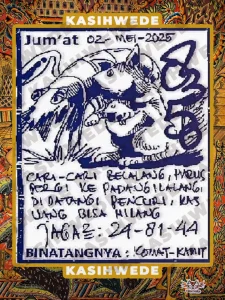 KASIHWEDE
Jum'at 02-MEI-2025
CARI-CARI BELALANG, HARUS
PERGI KE PADANG ILALANG,
DIDATANGI PENCURI, KAS
UANG BISA HILANG
JAGAE: 24-81-44
BINATANGNYA:
KASIHWEDE